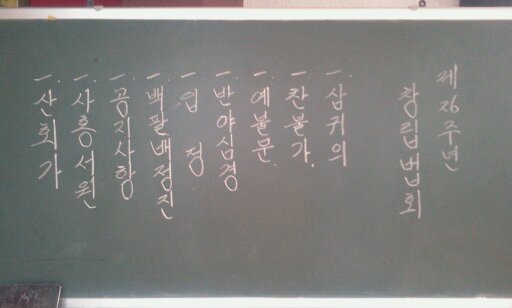 제26주년
창립법회
一. 삼귀의
一. 찬불가.
一. 예불문.
一. 반야심경
一. 입정
一. 백팔배정진
一. 공지사항
一. 사홍서원
一. 산회가